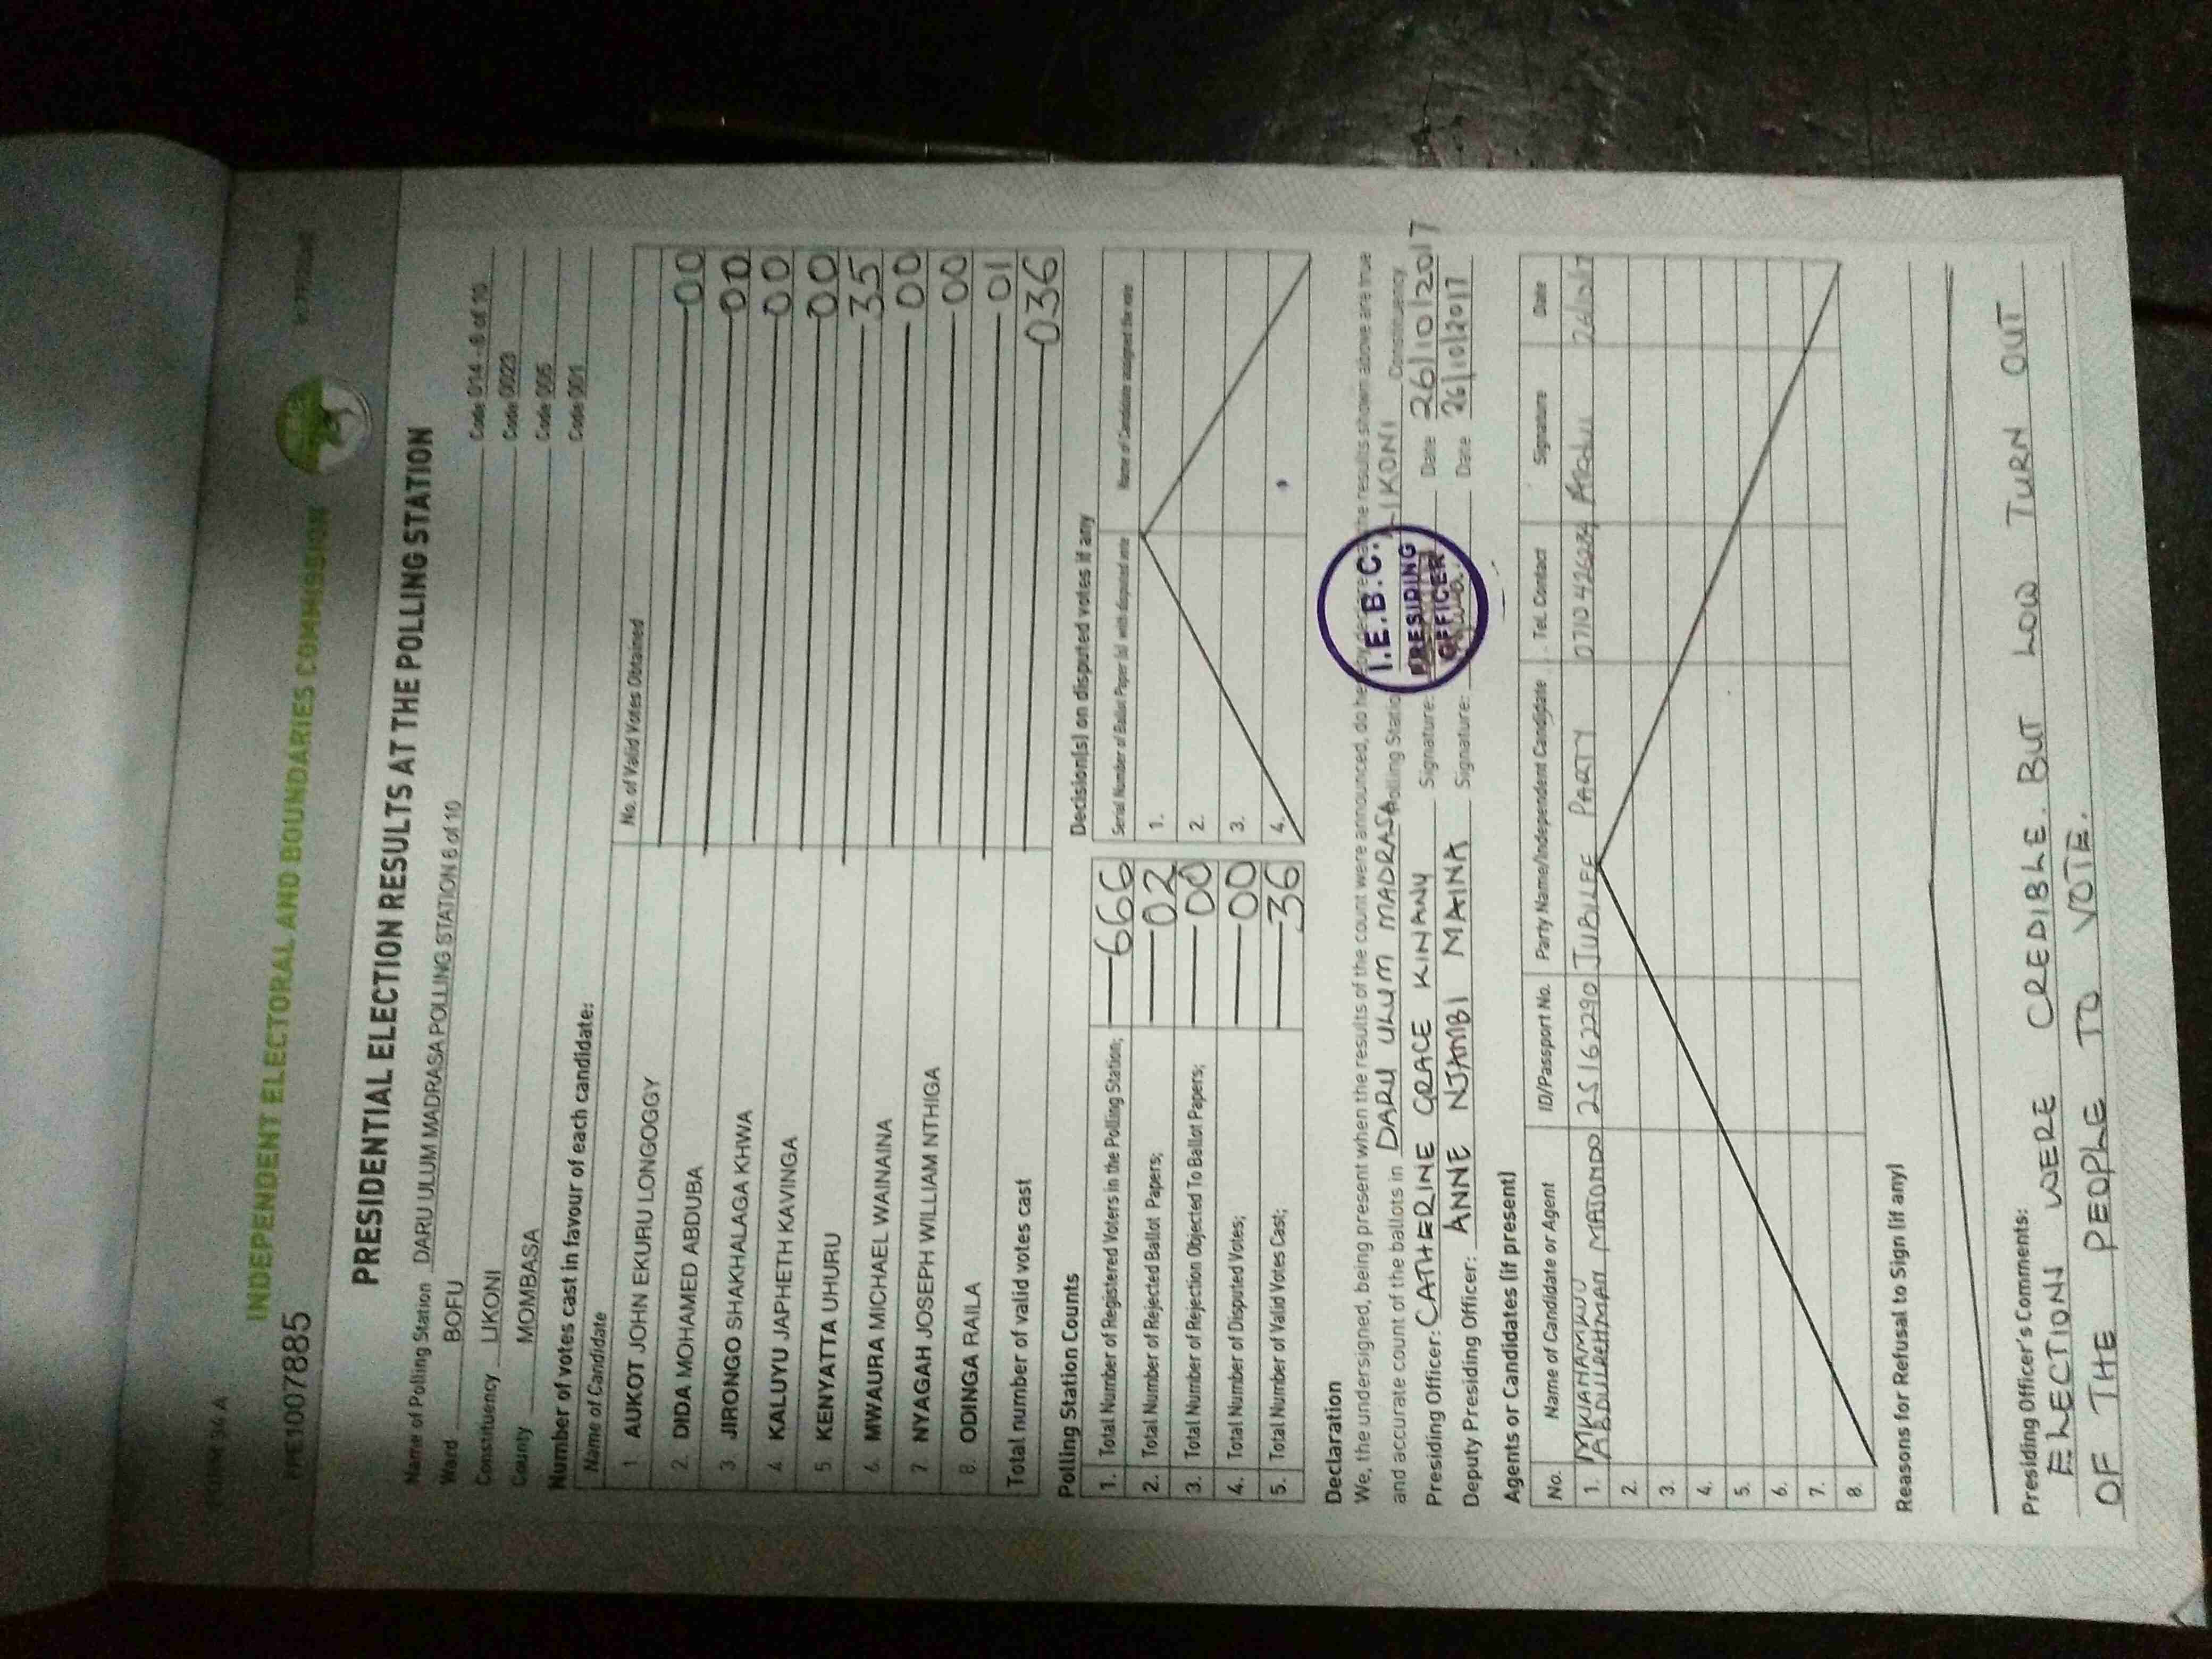 FORM 34 A
INDEPENDENT ELECTORAL AND BOUNDARIES COMMISSION
PRE1007885
PRESIDENTIAL ELECTION RESULTS AT THE POLLING STATION
Name of Polling Station DARU ULUM MADRASA POLLING STATION 6 of 10 Code 014 - 6 of 10
Ward BOFU Code 0023
Constituency LIKONI Code 005
County MOMBASA Code 001
Number of votes cast in favour of each candidate:
Name of Candidate No. of Valid Votes Obtained
1 AUKOT JOHN EKURU LONGOGGY 00
2. DIDA MOHAMED ABDUBA 00
3. JIRONGO SHAKHALAGA KHWA 00
4. KALUYU JAPHETH KAVINGA 00
5. KENYATTA UHURU 35
6. MWAURA MICHAEL WAINAINA 00
7. NYAGAH JOSEPH WILLIAM NTHIGA 00
8. ODINGA RAILA 01
Total number of valid votes cast 036
Polling Station Counts
1. Total Number of Registered Voters in the Polling Station; 666
2. Total Number of Rejected Ballot Papers; 02
3. Total Number of Rejection Objected To Ballot Papers; 00
4. Total Number of Disputed Votes; 00
5. Total Number of Valid Votes Cast; 36
Decision(s) on disputed votes if any
Serial Number of Ballot Paper (s) with disputed vote Name of Candidate assigned the vote
1.
2.
3.
4.
Declaration
We, the undersigned, being present when the results of the count were announced, do hereby declare the results shown above are true
and accurate count of the ballots in DARU ULUM MADRASA Polling Station LIKONI Constituency
Presiding Officer: CATHERINE GRACE KINANY Signature: Date 26/10/2017
Deputy Presiding Officer: ANNE NJAMBI MAINA Signature: Date 26/10/2017
I.E.B.C.
PRESIDING
OFFICER
Agents or Candidates (if present)
No. Name of Candidate or Agent ID/Passport No. Party Name/Independent Candidate Tel. Contact Signature Date
1. MKAHAMKUU ABDULREHMAN MAJONDO 25162290 JUBILEE PARTY
2.
3.
4.
5.
6.
7.
8.
Reasons for Refusal to Sign (if any)
Presiding Officer's Comments:
ELECTION WERE CREDIBLE. BUT LOW TURN OUT
OF THE PEOPLE TO VOTE.